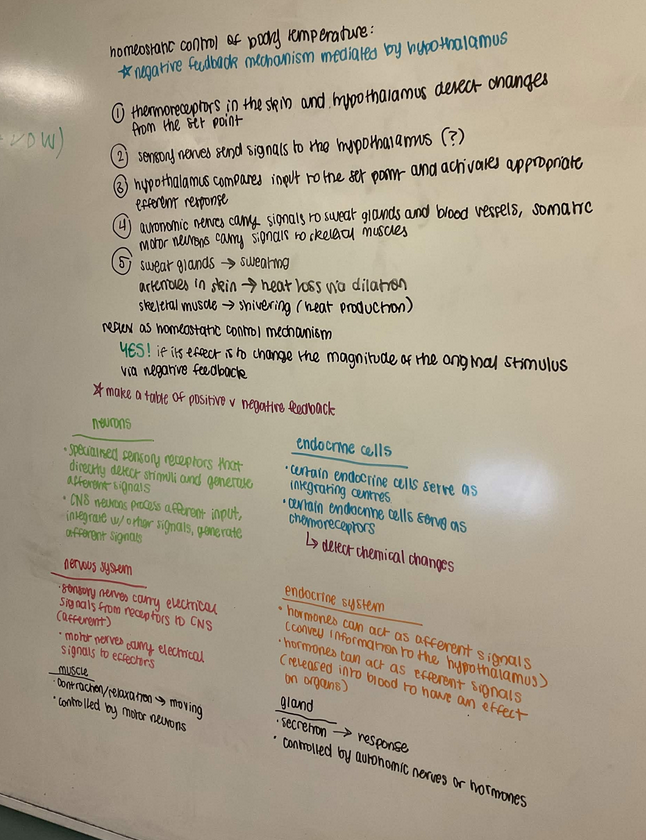 homeostatic control of body temperature:
★ negative feedback mechanism mediated by hypothalamus
① thermoreceptors in the skin and hypothalamus detect changes
from the set point
② sensory nerves send signals to the hypothalamus (?)
③ hypothalamus compares input to the set point and activates appropriate
efferent response
④ autonomic nerves carry signals to sweat glands and blood vessels, somatic
motor neurons carry signals to skeletal muscles
⑤ sweat glands → sweating
arterioles in skin → heat loss via dilation
skeletal muscle → shivering (heat production)
reflex as homeostatic control mechanism
YES! if its effect is to change the magnitude of the original stimulus
via negative feedback
★ make a table of positive v negative feedback
neurons
• specialised sensory receptors that
directly detect stimuli and generate
afferent signals
• CNS neurons process afferent input,
integrate w/ other signals, generate
afferent signals
endocrine cells
• certain endocrine cells serve as
integrating centres
• certain endocrine cells serve as
chemoreceptors
↳ detect chemical changes
nervous system
• sensory nerves carry electrical
signals from receptors to CNS
(afferent)
• motor nerves carry electrical
signals to effectors
endocrine system
• hormones can act as afferent signals
(convey information to the hypothalamus)
• hormones can act as efferent signals
(released into blood to have an effect
on organs)
muscle
• contraction/relaxation → moving
• controlled by motor neurons
gland
• secretion → response
• controlled by autonomic nerves or hormones